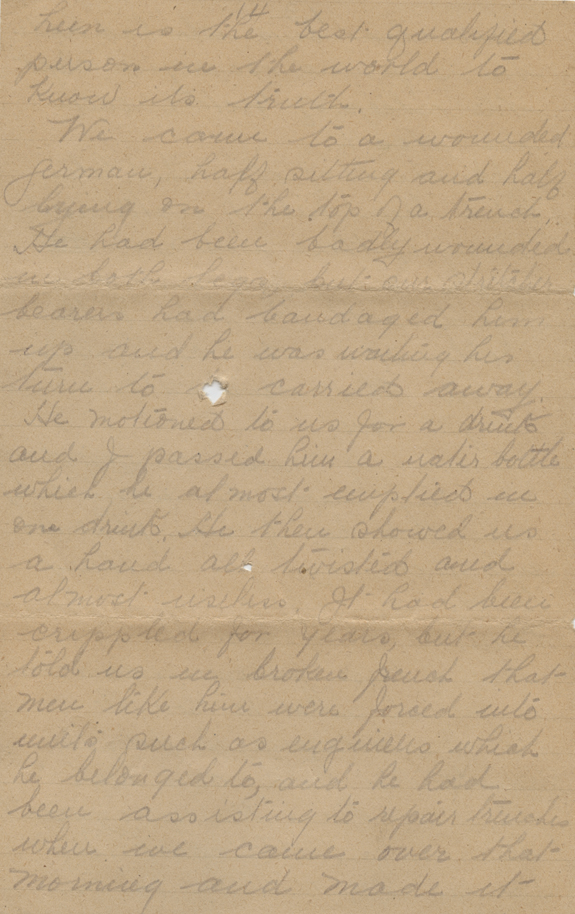 14
him is the best qualified
person in the world to
know its truth.
We came to a wounded
german, half sitting and half
lying on the top of a trench.
He had been badly wounded
in both legs but our stretcher
bearers had bandaged him
up and he was waiting his
turn to carried away.
He motioned to us for a drink
and I passed him a water bottle
which he almost emptied in
one drink. He then showed us
a hand all twisted and
almost useless. It had been
crippled for years, but he
told us in broken french that
men like him were forced into
units such as engineers, which
he belonged to, and he had
been assisting to repair trenches
when we came over that
morning and made it